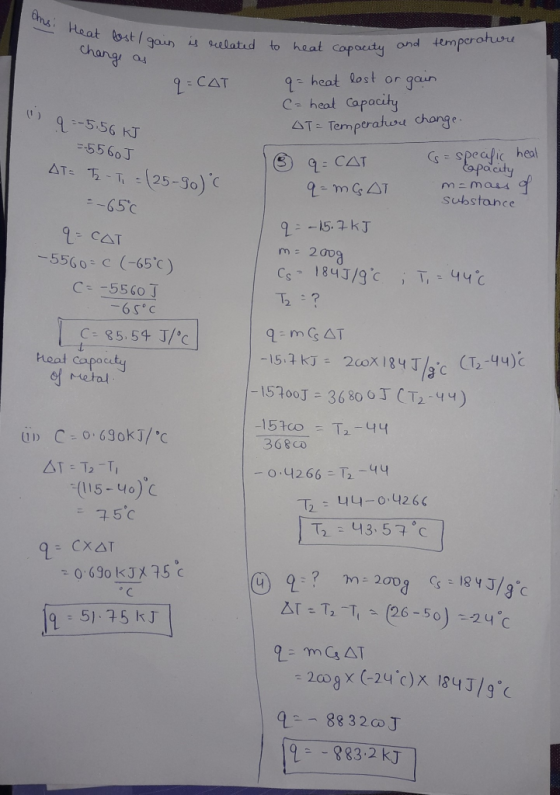 Ans: Heat lost/gain is related to heat capacity and temperature
change as
q = CΔT
q = heat lost or gain
C = heat capacity
ΔT = Temperature change.
(i) q = -5.56 kJ
= -5560 J
ΔT = T₂ - T₁ = (25-90)°C
= -65°C
q = CΔT
-5560 = C (-65°C)
C = -5560 J
-65°C
C = 85.54 J/°C
Heat capacity
of Metal
(ii) C = 0.690 kJ/°C
ΔT = T₂ - T₁
= (115-40)°C
= 75°C
q = C×ΔT
= 0.690 kJ × 75°C
°C
q = 51.75 kJ
③ q = CΔT
Cs = specific heat
capacity
q = mCsΔT
m = mass of
substance
q = -15.7 kJ
m = 200g
Cs = 184 J/g°C ; T₁ = 44°C
T₂ = ?
q = mCsΔT
-15.7 kJ = 200×184 J/g°C (T₂-44)°C
-15700J = 36800J (T₂-44)
-15700
36800
= T₂-44
-0.4266 = T₂-44
T₂ = 44-0.4266
T₂ = 43.57°C
④ q = ? m = 200g Cs = 184 J/g°C
ΔT = T₂-T₁ = (26-50) = -24°C
q = mCsΔT
= 200g × (-24°C) × 184 J/g°C
q = -883200J
q = -883.2 kJ